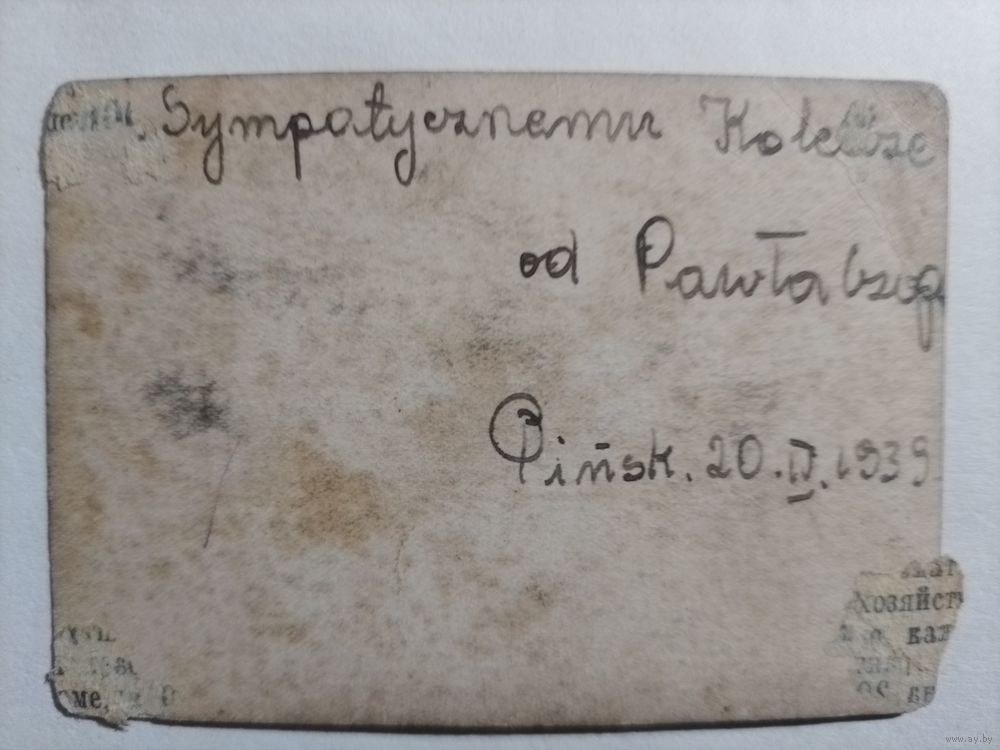 Sympatycznemu Koledze
od Pawła
Pińsk. 20.IV.1939.
Хозяйст
ме,
www.ay.by